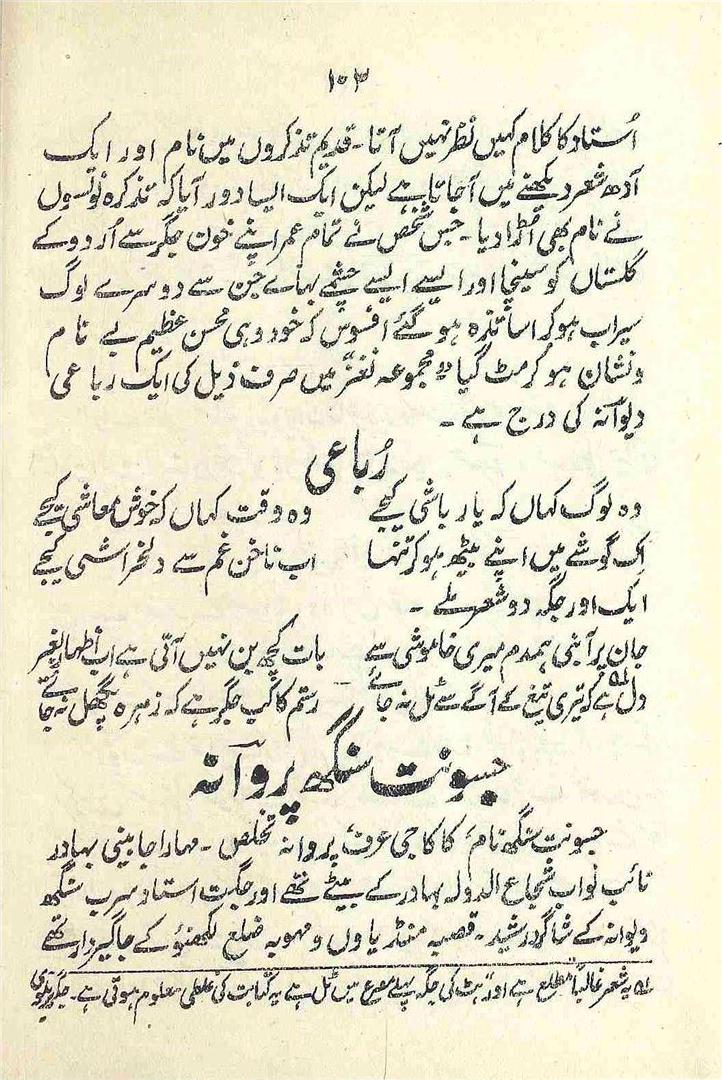 ۱۰۳
اُستاد کا کلام کہیں نظر نہیں آتا۔ قدیم تذکروں میں نام اور ایک
آدھ شعر دیکھنے میں آجاتا ہے لیکن ایک ایسا دور آیا کہ تذکرہ نویسوں
نے نام بھی اڑا دیا۔ جس شخص نے تمام عمر اپنے خون جگر سے اُردو کے
گلستاں کو سینچا اور ایسے ایسے چشمے بہائے جن سے دوسرے لوگ
سیراب ہوکر اساتذہ ہو گئے افسوس کہ خود وہی محسن عظیم بے نام
ونشان ہو کر مٹ گیا "مجموعہ نغز" میں صرف ذیل کی ایک رباعی
دیوانہ کی درج ہے۔
رُباعی
وہ لوگ کہاں کہ یار باشی کیجے وہ وقت کہاں کہ خوش معاشی کیجے
اِک گوشے میں اپنے بیٹھ ہو کر تنہا اب ناخن غم سے دلخراشی کیجے
ایک اور جگہ دو شعر ملے۔
جان پر آبنی ہمدم میری خاموشی سے بات کچھ بن نہیں آتی ہے اب اظہار بغیر
دل ہے ۱ کہ تیری تیغ کے آگے سے ٹل نہ جائے رستم کا کب جگر ہے کہ زہرہ پگھل نہ جائے
جسونت سنگھ پروآنہ
جسونت سنگھ نام، کاکا جی عرف، پروانہ تخلص۔ مہاراجا بینی بہادر
نائب نواب شجاع الدولہ بہادر کے بیٹے تھے اور جگت استاد سرب سنگھ
دیوانہ کے شاگرد رشید۔ قصبہ منڈیاوں و مہوبہ ضلع لکھنؤ کے جاگیردار تھے
۱ یہ شعر غالباً مطلع ہے اور "ہٹ" کی جگہ پہلے مصرع میں ٹل ہے یہ کتابت کی غلطی معلوم ہوتی ہے۔ جگر بریلوی